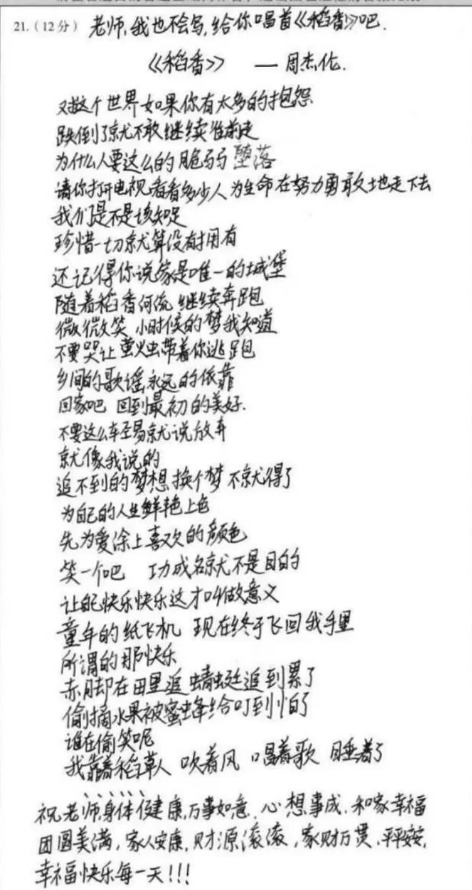 21.（12分） 老师，我也不会写，给你唱首《稻香》吧．
《稻香》 —周杰伦．
对这个世界如果你有太多的抱怨
跌倒了就不敢继续往前走
为什么人要这么的脆弱 堕落
请你打开电视看看多少人为生命在努力勇敢地走下去
我们是不是该知足
珍惜一切就算没有拥有
还记得你说家是唯一的城堡
随着稻香河流继续奔跑
微微笑 小时候的梦我知道
不要哭让萤火虫带着你逃跑
乡间的歌谣永远的依靠
回家吧 回到最初的美好．
不要这么轻易就说放弃
就像我说的
追不到的梦想换个梦不就得了
为自己的人生鲜艳上色
先为爱涂上喜欢的颜色
笑一个吧 功成名就不是目的
让自己快乐快乐这才叫做意义
童年的纸飞机 现在终于飞回我手里
所谓的那快乐
赤脚在田里追蜻蜓追到累了
偷摘水果被蜜蜂给叮到怕了
谁在偷笑呢
我靠着稻草人 吹着风 唱着歌 睡着了
祝老师身体健康，万事如意，心想事成，和家幸福
团圆美满，家人安康，财源滚滚，家财万贯，平安，
幸福快乐每一天!!!